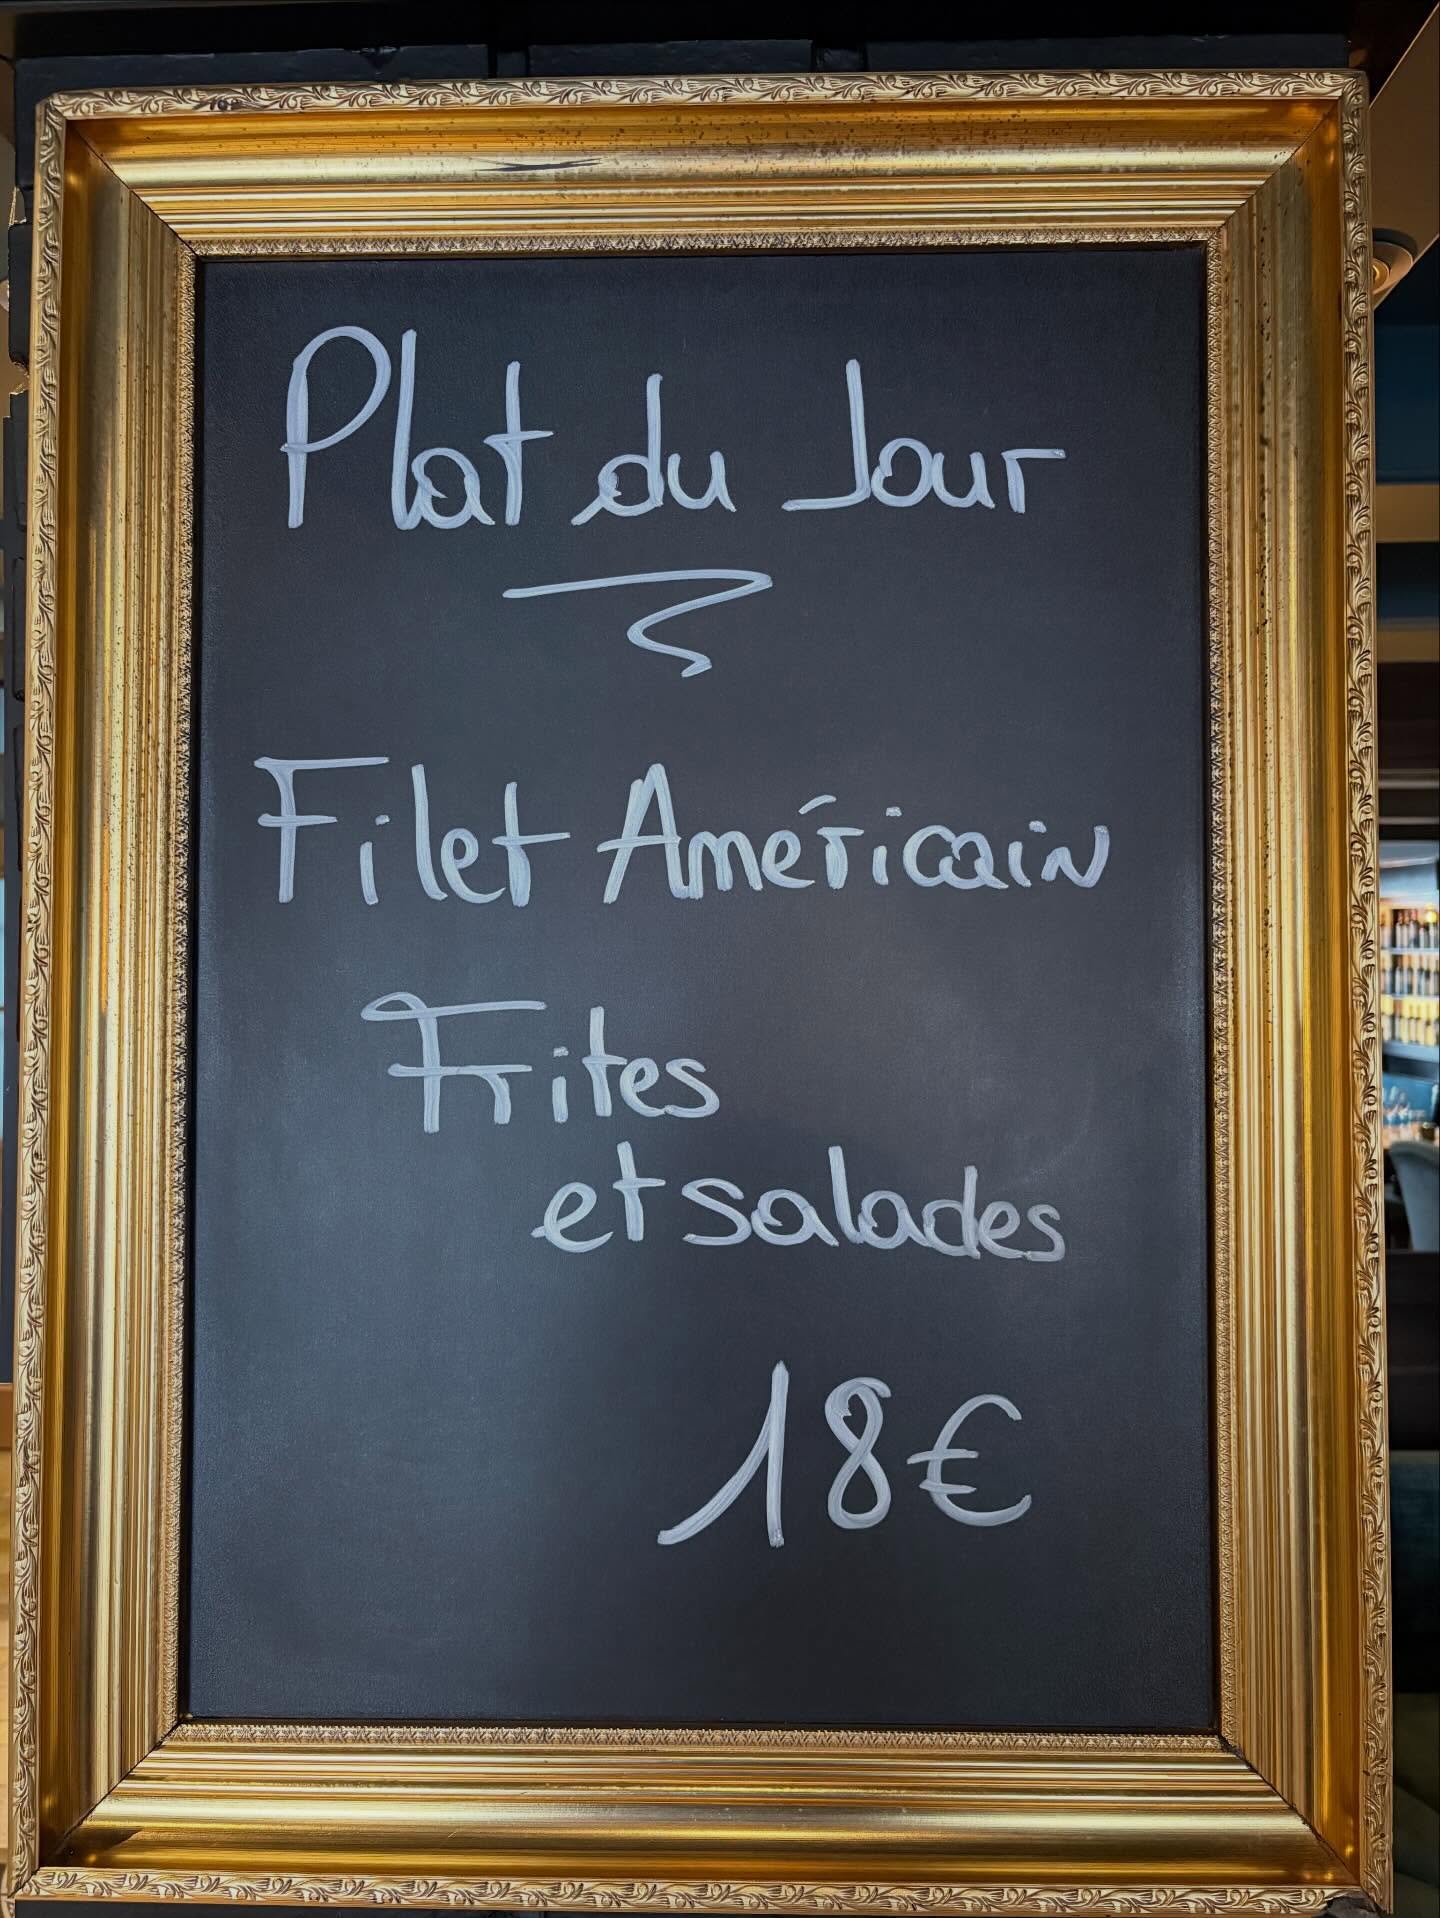 Plat du Jour
Filet Américain
Frites
et salades
18€